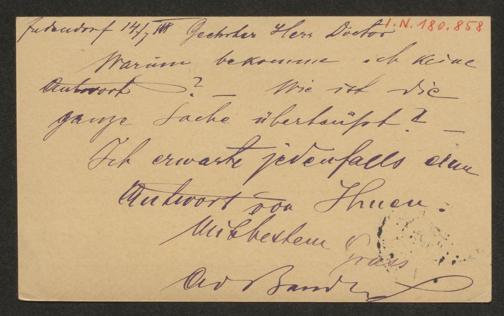 Judendorf 14/7 Geehrter Herr Doctor
I.N. 180.858
Warum bekomme ich keine
Antwort? — Wie ist die
ganze Sache überhaupt? —
Ich erwarte jedenfalls eine
Antwort von Ihnen.
Mit bestem Gruss